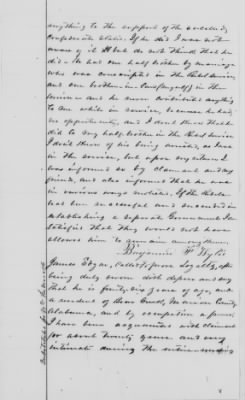 anything to the support of the so called
Confederate States. If he did I was not
aware of it & I do not think that he
did. He had one half brother by marriage
who was conscripted in the Rebel Service
and one brother-in-law (myself) in the
service and he never contributed anything
to me while in service, because he had
no opportunity, and I don't think that he
did to my half brother in the Rebel Service
I don't know of his being arrested, as I was
in the service, but upon my return I
was informed so by claimant and my
friends, and also informed that he was
in various ways molested. If the Rebellion
had been successful and succeeded in
establishing a separate Government I am
satisfied that they would not have
allowed him to remain among them.
Benjamin
James Edgar, called to prove Loyalty, after
being duly sworn doth depose and say
that he is forty-six years of age, and
a resident of Bear Creek, Marion County,
Alabama, and by occupation a farmer,
I have been acquainted with claimant
for about twenty years and very
intimate during the entire